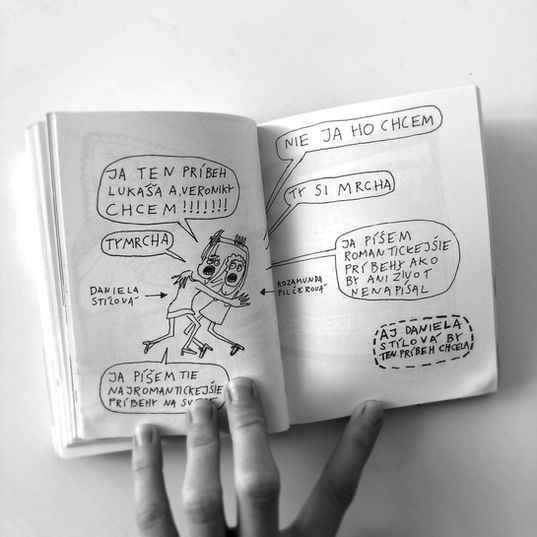 JA TEN PRÍBEH
LUKAŠA A VERONIKY
CHCEM !!!!!!!
TY MRCHA
DANIELA
STÍLOVÁ
JA PÍŠEM TIE
NAJROMANTICKEJŠIE
PRÍBEHY NA
NIE JA HO CHCEM
TY SI MRCHA
JA PÍŠEM
ROMANTICKEJŠIE
PRÍBEHY AKO
BY ANI ŽIVOT
NENAPÍSAL
ROZAMUNDA
PILČEROVÁ
AJ DANIELA
STÍLOVÁ BY
TEN PRÍBEH CHCELA